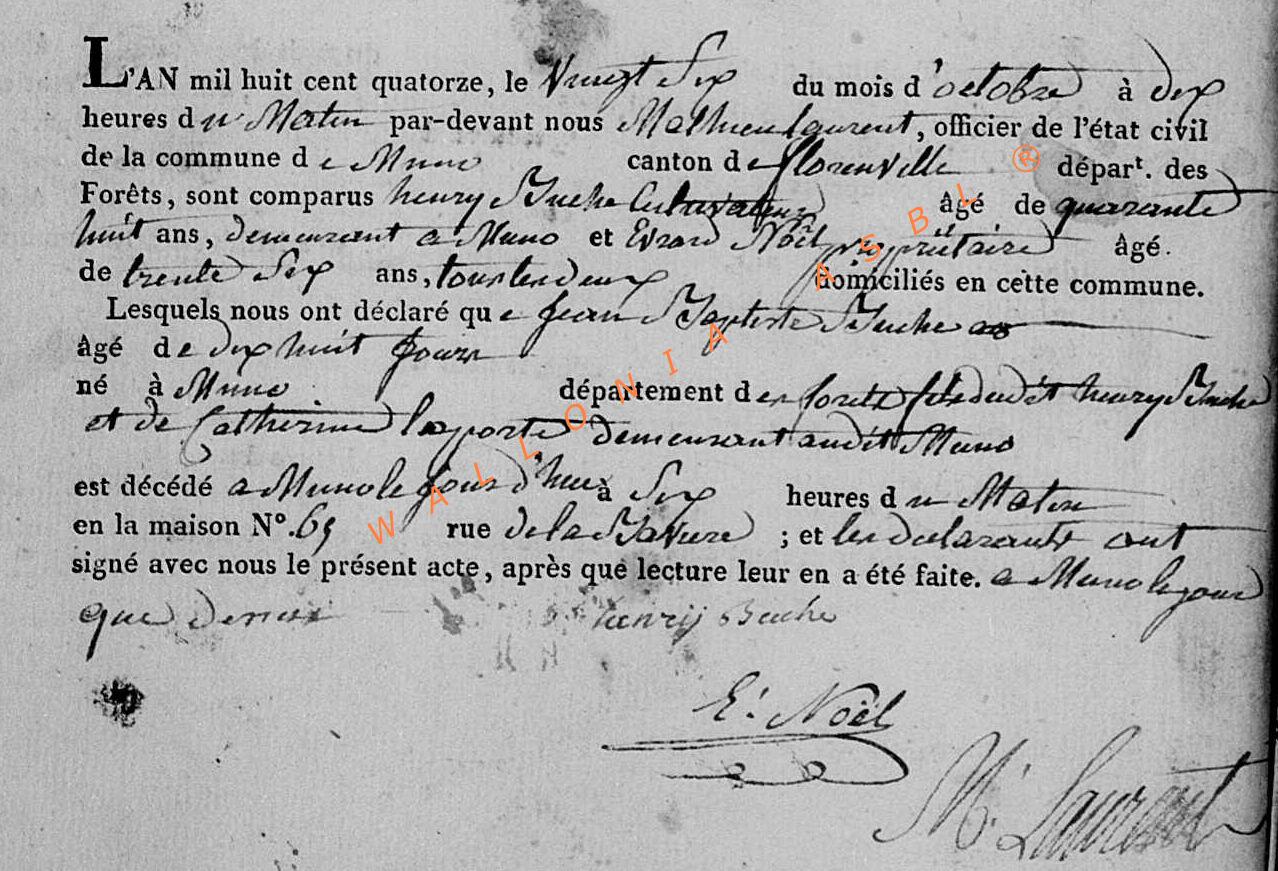 L'AN mil huit cent quatorze, le vingt Six du mois d'octobre à dix
heures du Matin par-devant nous Mathieu laurent, officier de l'état civil
de la commune de Muno canton de florenville départ. des
Forêts, sont comparus henry Buche Cultivateur âgé de quarante
huit ans, demeurant a Muno et Evrard Noël propriétaire âgé
de trente Six ans, tous les deux domiciliés en cette commune.
Lesquels nous ont déclaré que jean Baptiste Buche
âgé de dix huit jours
né à Muno département des forêts fils dudit henry Buche
et de Catherine laporte demeurant audit Muno
est décédé a Muno le jour d'hui à Six heures du Matin
en la maison N°. 69 rue de la ; et les declarants ont
signé avec nous le présent acte, après que lecture leur en a été faite. a Muno le jour
que dessus henrij Buche
E. Noël
M. Laurent
WALLONIA ASBL ®